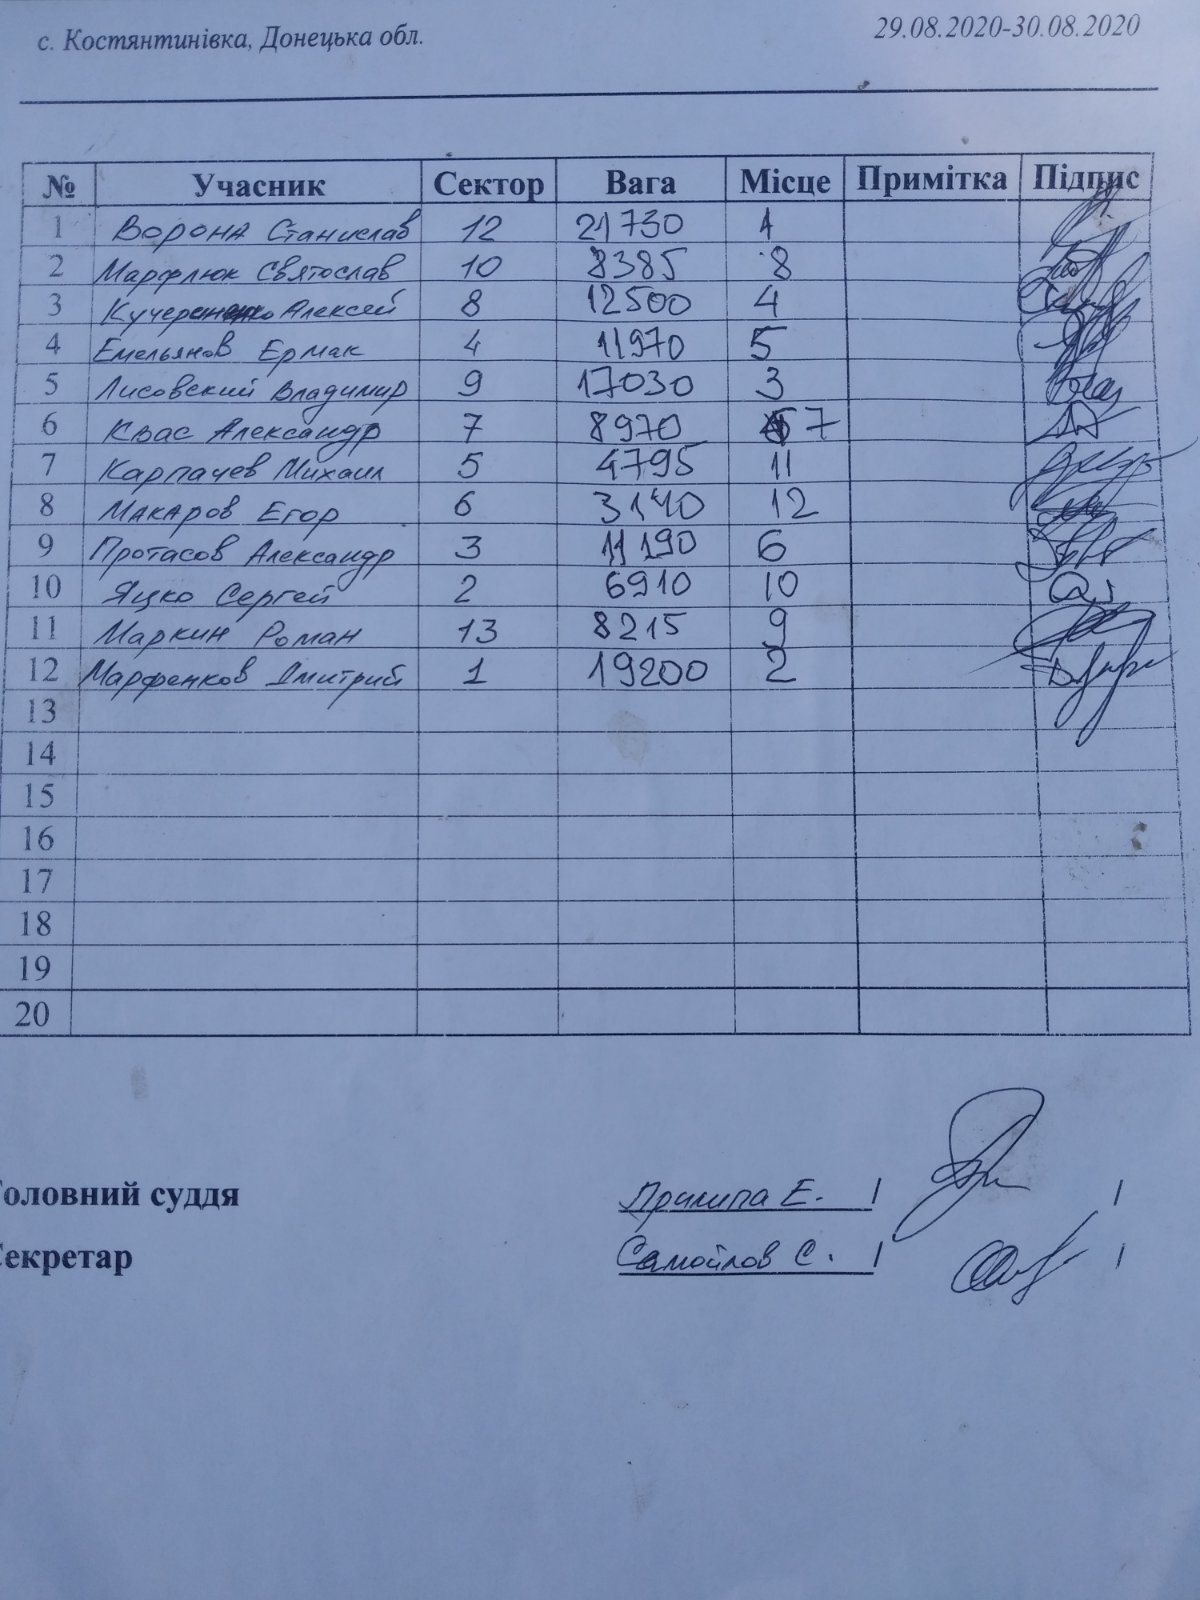 с. Костянтинівка, Донецька обл. 29.08.2020-30.08.2020
№ Учасник Сектор Вага Місце Примітка Підпис
1 Ворона Станислав 12 21730 1
2 Марфлюк Святослав 10 8385 8
3 Кучеренко Алексей 8 12500 4
4 Емельянов Ермак 4 11970 5
5 Лисовский Владимир 9 17030 3
6 Квас Александр 7 8970 7
7 Карпачев Михаил 5 4795 11
8 Макаров Егор 6 3140 12
9 Протасов Александр 3 11190 6
10 Яцко Сергей 2 6910 10
11 Маркин Роман 13 8215 9
12 Марфенков Дмитрий 1 19200 2
13
14
15
16
17
18
19
20
Головний суддя Прилипа Е. / /
Секретар Самойлов С. / /